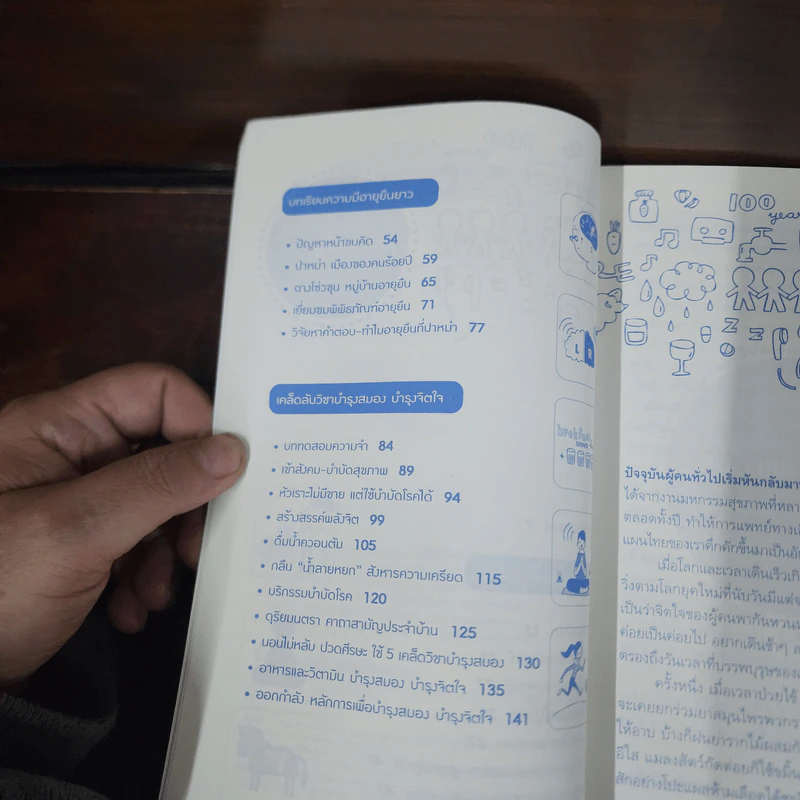 บทเรียนความมีอายุยืนยาว
• ปัญหาหน้าขบคิด 54
• ปาหม่า เมืองของคนร้อยปี 59
• ตางโซ่วซุน หมู่บ้านอายุยืน 65
• เยี่ยมชมพิพิธภัณฑ์อายุยืน 71
• วิจัยหาคำตอบ-ทำไมอายุยืนที่ปาหม่า 77
เคล็ดลับวิชาบำรุงสมอง บำรุงจิตใจ
• บททดสอบความจำ 84
• เข้าสังคม-บำบัดสุขภาพ 89
• หัวเราะไม่มีขาย แต่ใช้บำบัดโรคได้ 94
• สร้างสรรค์พลังจิต 99
• ดื่มน้ำควอนตัม 105
• กลืน “น้ำลายหยก” สังหารความเครียด 115
• บริกรรมบำบัดโรค 120
• ดุริยมนตรา คาถาสามัญประจำบ้าน 125
• นอนไม่หลับ ปวดศีรษะ ใช้ 5 เคล็ดวิชาบำรุงสมอง 130
• อาหารและวิตามิน บำรุงสมอง บำรุงจิตใจ 135
• ออกกำลัง หลักการเพื่อบำรุงสมอง บำรุงจิตใจ 141
L R
100
year
z
z
ปัจจุบันผู้คนทั่วไปเริ่มหันกลับมา
ได้จากงานมหกรรมสุขภาพที่หลา
ตลอดทั้งปี ทำให้การแพทย์ทางเ
แผนไทยของเราคึกคักขึ้นมาเป็นอั
เมื่อโลกและเวลาเดินเร็วเกิ
วิ่งตามโลกยุคใหม่ที่นับวันมีแต่จ
เป็นว่าจิตใจของผู้คนพากันหวนห
ค่อยเป็นค่อยไป อยากเดินช้าๆ ล
ตรองถึงวันเวลาที่บรรพบุรุษของเ
ครั้งหนึ่ง เมื่อเวลาป่วยไข้
จะเคยยกร่วมยาสมุนไพรพวกร
ให้อาบ บ้างก็ฝนยารากไม้ผสมก
อีใส แมลงสัตว์กัดต่อยก็ใช้ขมิ้น
สักอย่างโปะแผลห้ามเลือดได้